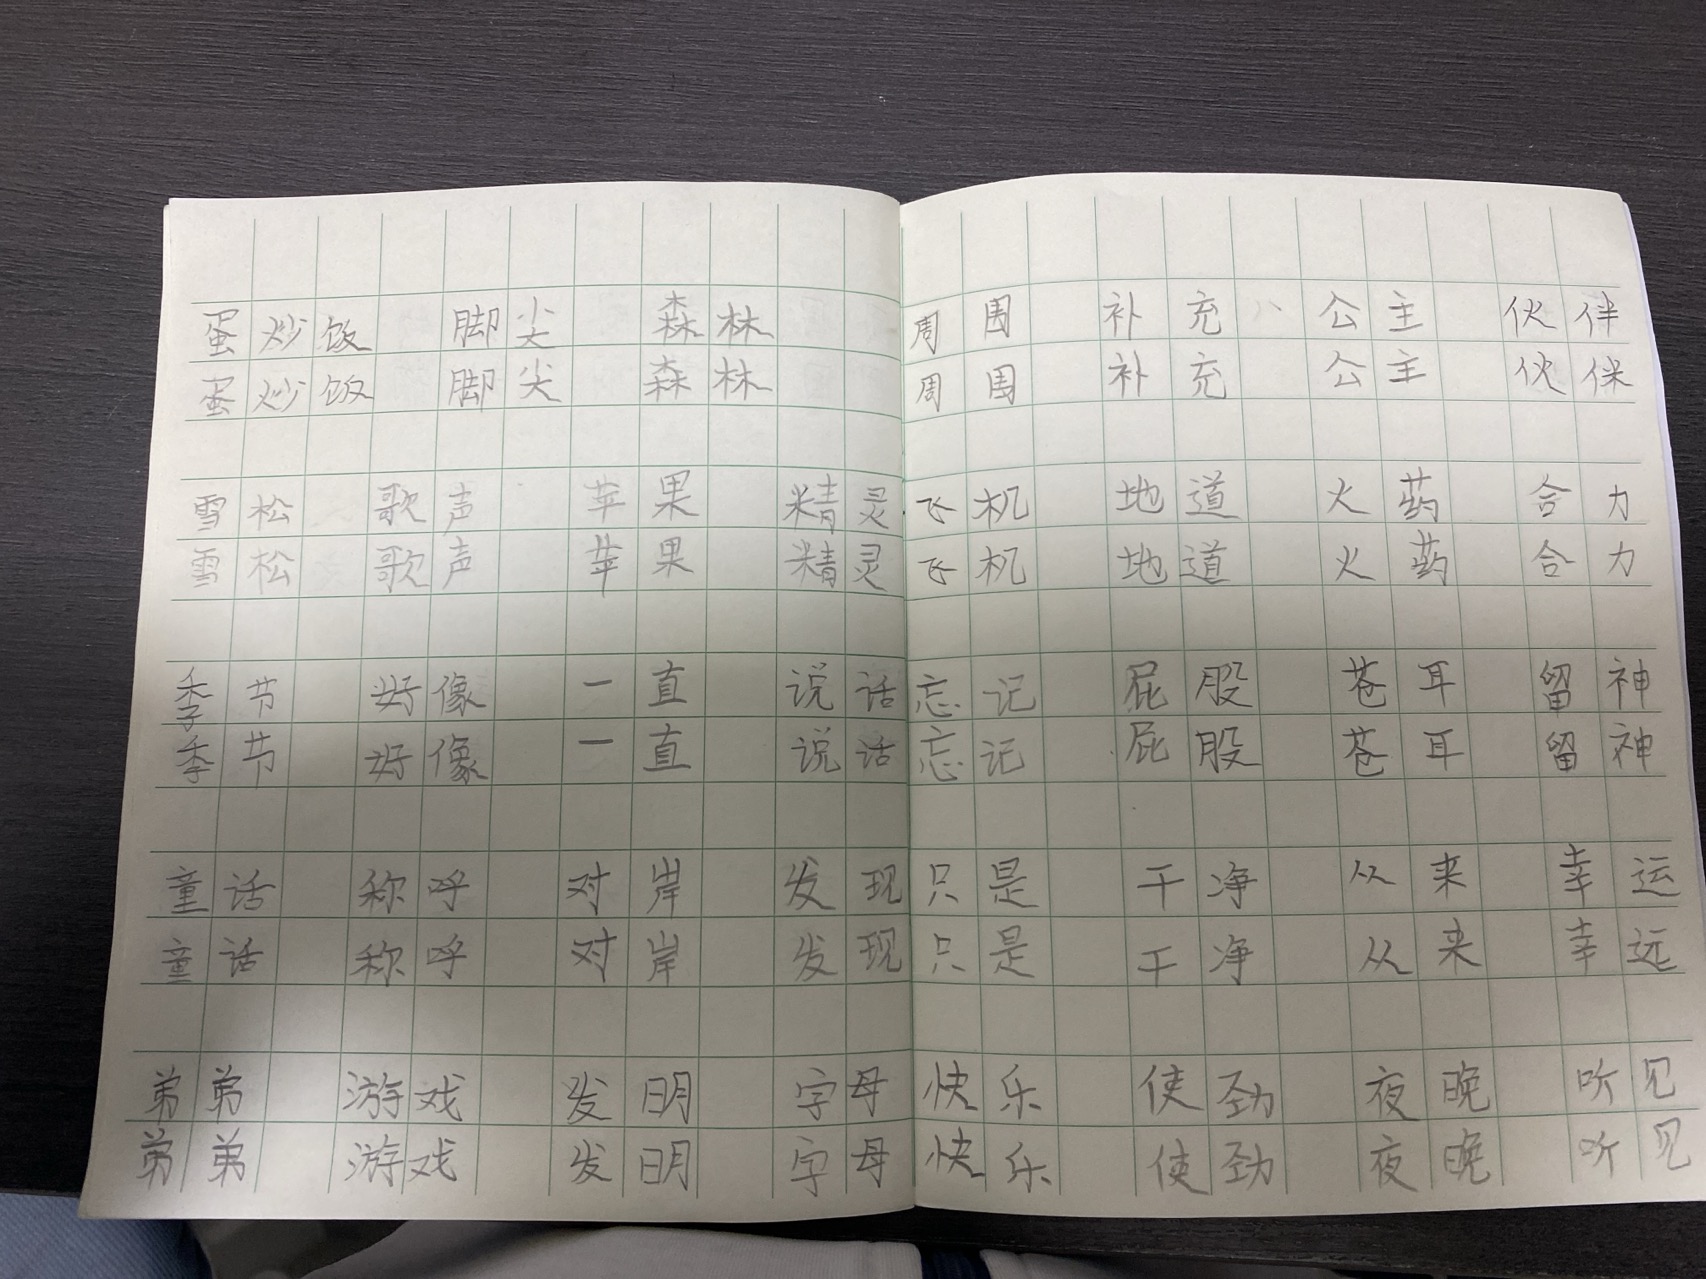 蛋炒饭 脚尖 森林
蛋炒饭 脚尖 森林
雪松 歌声 苹果 精灵
雪松 歌声 苹果 精灵
季节 好像 一直 说话
季节 好像 一直 说话
童话 称呼 对岸 发现
童话 称呼 对岸 发现
弟弟 游戏 发明 字母
弟弟 游戏 发明 字母
周围 补充 公主 伙伴
周围 补充 公主 伙
飞机 地道 火药 合力
飞机 地道 火药 合力
忘记 屁股 苍耳 留神
忘记 屁股 苍耳 留神
只是 干净 从来 幸运
只是 干净 从来 幸远
快乐 使劲 夜晚 听见
快乐 使劲 夜晚 听见